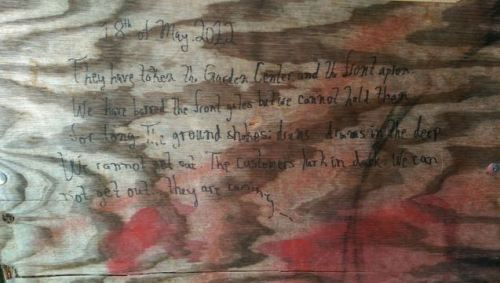 18th of May. 2012
They have taken the Garden Center and the front apron.
We have barred the front gates but we cannot hold them
for long. The ground shakes: drums... drums in the deep
We cannot get out. The customers lurk in dark. We can
not get out. They are coming